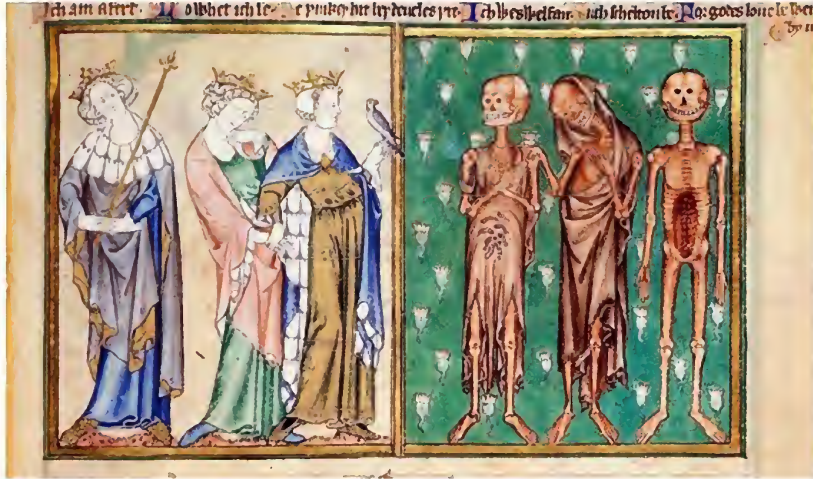 Ich am afert. Lo whet ich se. Me þinkeþ hit beþ deueles þre. Ich wes wel fair. Such scheltou be. For godes loue be wer
by m